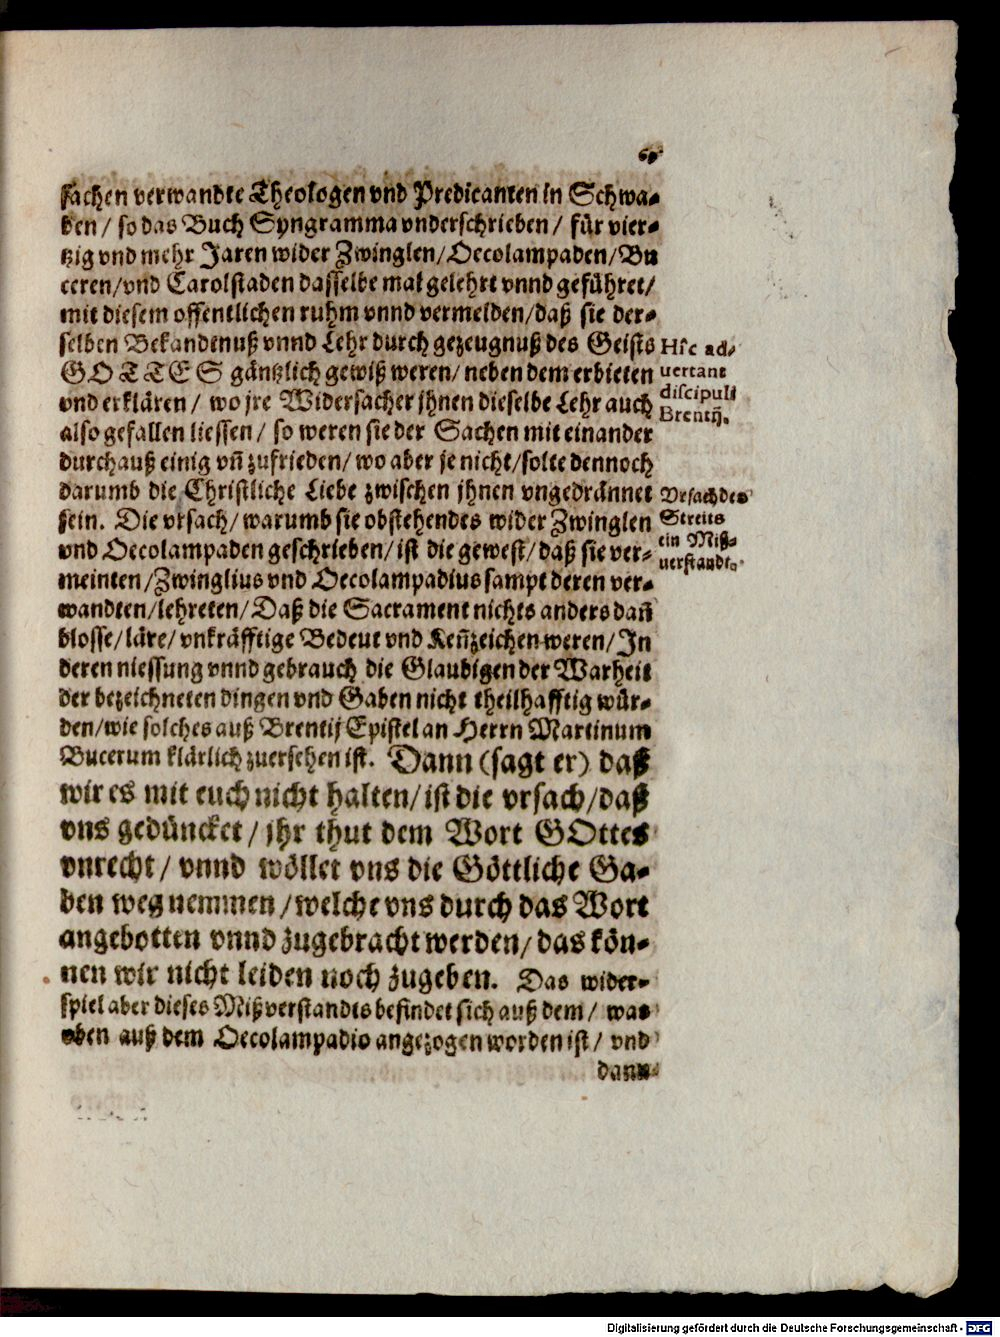 sachen verwandte Theologen vnd Predicanten in Schwa-
ben / so das Buch Syngramma vnderschrieben / für vier-
tzig vnd mehr Jaren wider Zwinglen/Oecolampaden/Bu
ceren/vnd Carolstaden dasselbe mal gelehrt vnnd geführet/
mit diesem offentlichen ruhm vnnd vermelden/daß sie der-
selben Bekandenuß vnnd Lehr durch gezeugnuß des Geists
GOTTES gäntzlich gewiß weren/ neben dem erbieten
vnd erklären / wo jre Widersacher jhnen dieselbe Lehr auch
also gefallen liessen / so weren sie der Sachen mit einander
durchauß einig vñ zufrieden/ wo aber je nicht/solte dennoch
darumb die Christliche Liebe zwischen jhnen vngedrännet
sein. Die vrsach/ warumb sie obstehendes wider Zwinglen
vnd Oecolampaden geschrieben/ ist die gewest/ daß sie ver-
meinten/Zwinglius vnd Oecolampadius sampt deren ver-
wandten/lehreten/Daß die Sacrament nichts anders dañ
blosse/läre/ vnkräfftige Bedeut vnd Keñzeichen weren/ In
deren niessung vnnd gebrauch die Glaubigen der Warheit
der bezeichneten dingen vnd Gaben nicht theilhafftig wür-
den/wie solches auß Brentij Epistel an Herrn Martinum
Bucerum klärlich zuersehen ist. Dann (sagt er) daß
wir es mit euch nicht halten/ ist die vrsach/daß
vns gedüncket / jhr thut dem Wort GOttes
vnrecht/ vnnd wöllet vns die Göttliche Ga-
ben weg nemmen /welche vns durch das Wort
angebotten vnnd zugebracht werden/ das kön-
nen wir nicht leiden noch zugeben. Das wider-
spiel aber dieses Mißverstandts befindet sich auß dem / was
oben auß dem Oecolampadio angezogen worden ist/ vnd
dann
Hîc ad-
uertant
discipuli
Brentij.
Vrsach des
Streits
ein Miß-
uerstandt.
Digitalisierung gefördert durch die Deutsche Forschungsgemeinschaft - DFG